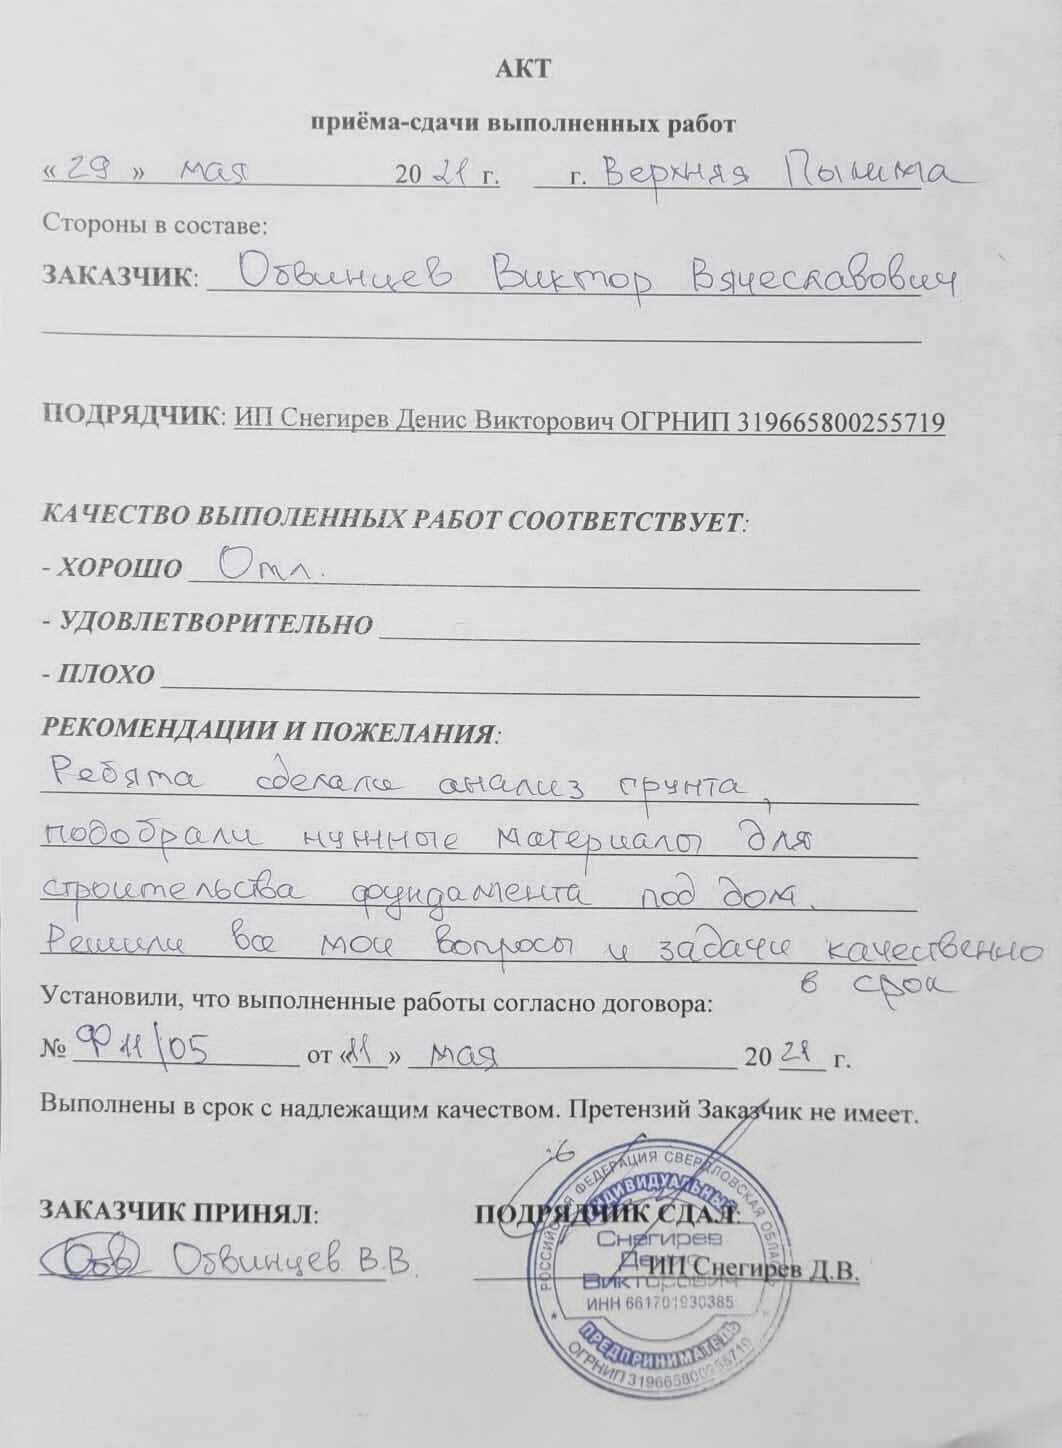 АКТ
приёма-сдачи выполненных работ
« 29 » мая 20 21 г. г. Верхняя Пышма
Стороны в составе:
ЗАКАЗЧИК: Обвинцев Виктор Вячеславович
ПОДРЯДЧИК: ИП Снегирев Денис Викторович ОГРНИП 319665800255719
КАЧЕСТВО ВЫПОЛЕННЫХ РАБОТ СООТВЕТСТВУЕТ:
- ХОРОШО Отл.
- УДОВЛЕТВОРИТЕЛЬНО
- ПЛОХО
РЕКОМЕНДАЦИИ И ПОЖЕЛАНИЯ:
Ребята сделали анализ грунта,
подобрали нужные материалы для
строительства фундамента под дом.
Решили все мои вопросы и задачи качественно
в срок
Установили, что выполненные работы согласно договора:
№ Ф 11/05 от «11» мая 20 21 г.
Выполнены в срок с надлежащим качеством. Претензий Заказчик не имеет.
ЗАКАЗЧИК ПРИНЯЛ: ПОДРЯДЧИК СДАЛ:
Обвинцев В.В. ИП Снегирев Д.В.
РОССИЙСКАЯ ФЕДЕРАЦИЯ СВЕРДЛОВСКАЯ ОБЛАСТЬ
ИНДИВИДУАЛЬНЫЙ
Снегирев
Денис
Викторович
ИНН 661701930385
ПРЕДПРИНИМАТЕЛЬ
ОГРНИП 319665800255719